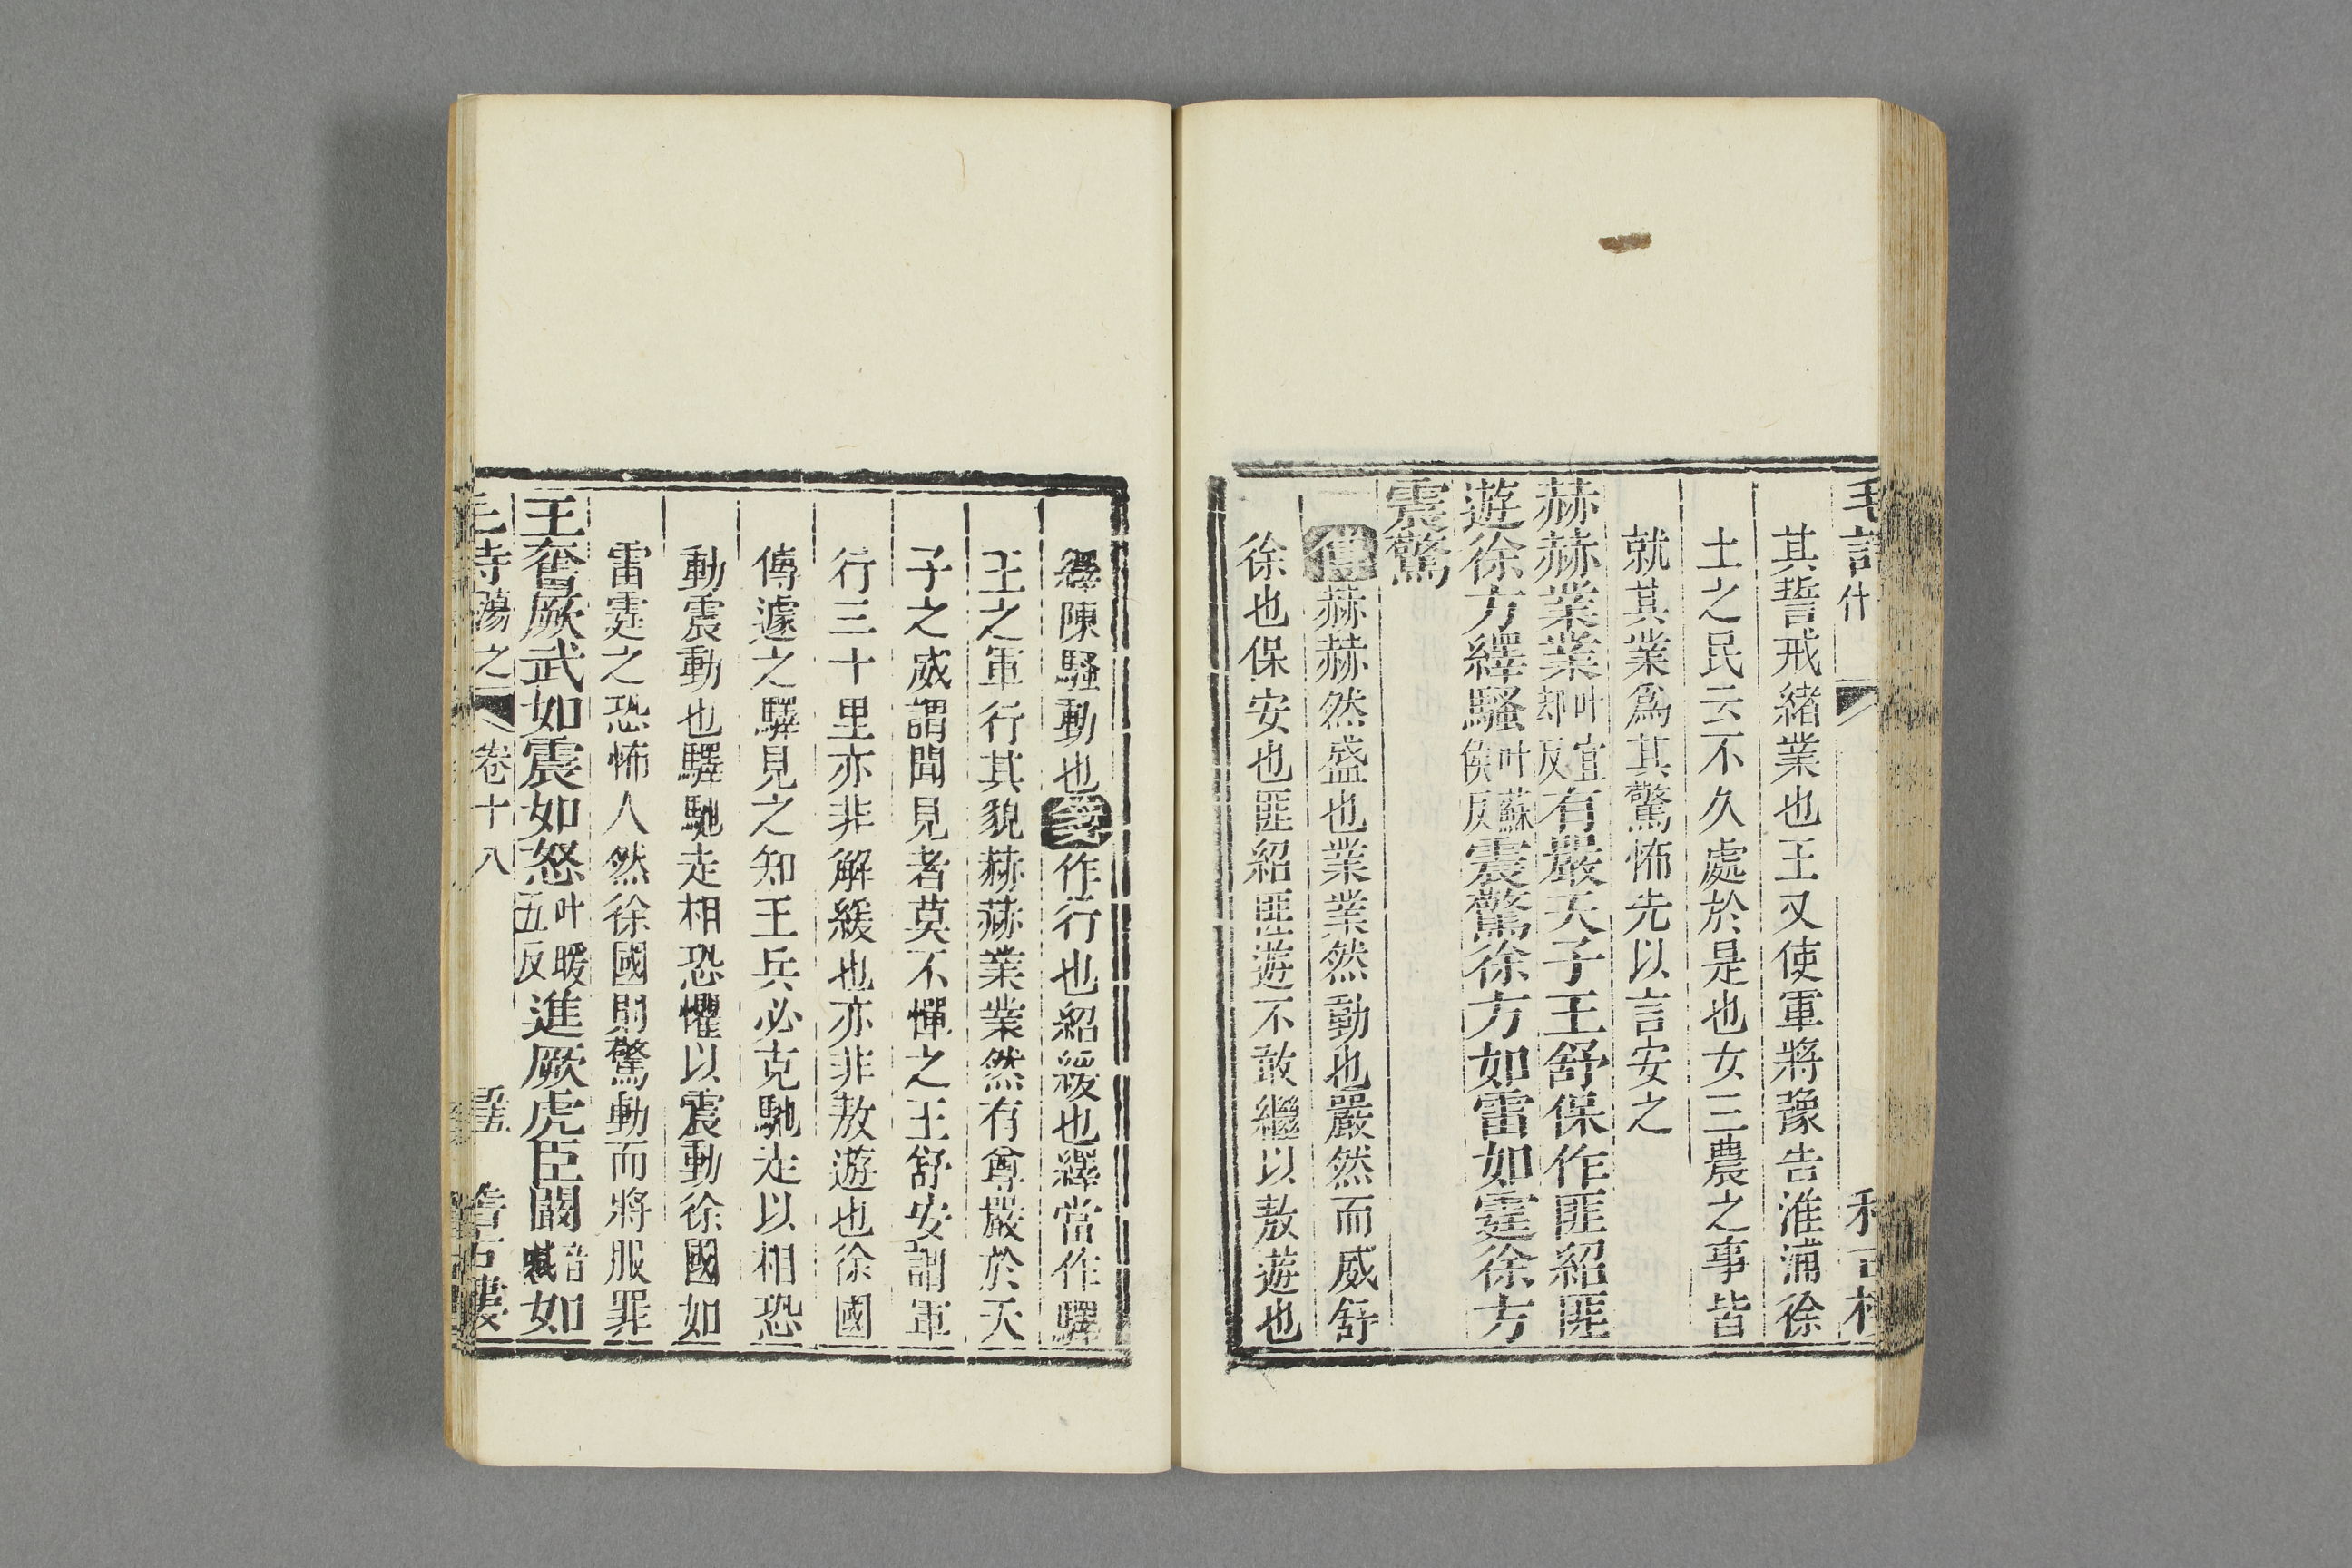 其誓戒緒業也王又使軍將豫告淮浦徐
土之民云不久處於是也女三農之事皆
就其業為其驚怖先以言安之
赫赫業業叶宜却反有嚴天子王舒保作匪紹匪
遊徐方繹騷叶蘇侯反震驚徐方如雷如霆徐方
震驚
傳赫赫然盛也業業然動也嚴然而威舒
徐也保安也匪紹匪遊不敢繼以敖遊也
繹陳騷動也箋作行也紹緩也繹當作驛
王之軍行其貌赫赫業業然有尊嚴於天
子之威謂聞見者莫不憚之王舒安謂軍
行三十里亦非解緩也亦非敖遊也徐國
傳遽之驛見之知王兵必克馳走以相恐
動震動也驛馳走相恐懼以震動徐國如
雷霆之恐怖人然徐國則驚動而將服罪
王奮厥武如震如怒叶暖五反進厥虎臣闞音喊如
毛詩蕩之 卷十八